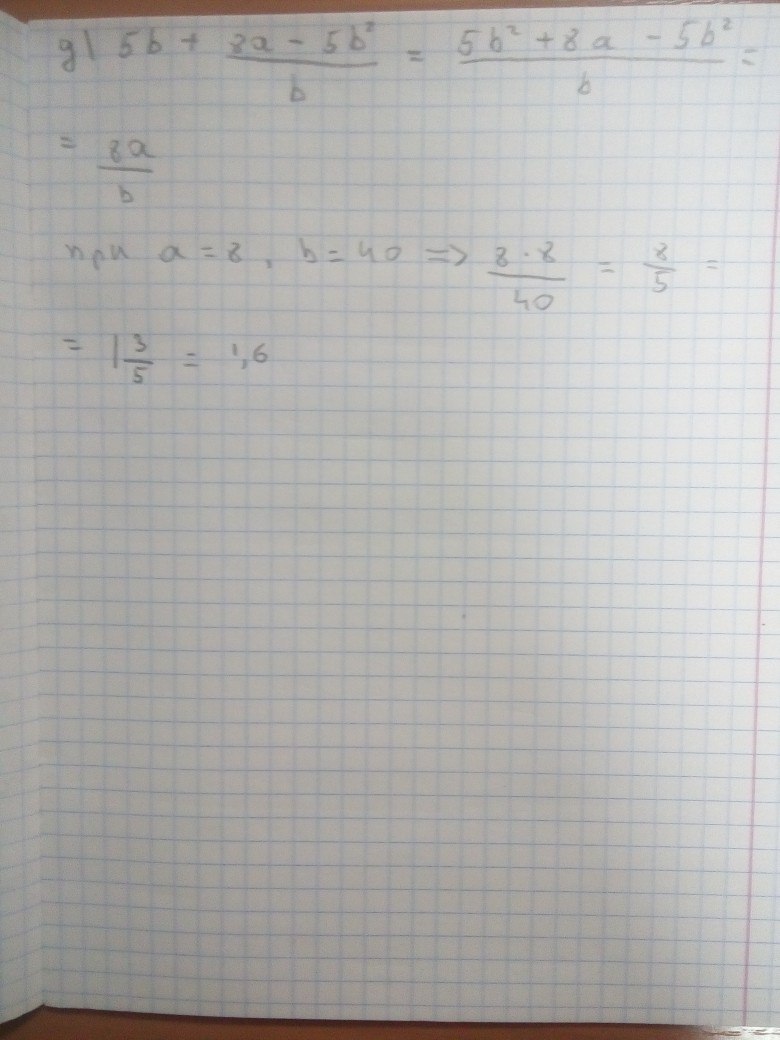 д) 5b + (8a - 5b²)/b = (5b² + 8a - 5b²)/b =
= 8a/b
при a = 8, b = 40 => (8 · 8)/40 = 8/5 =
= 1 3/5 = 1,6